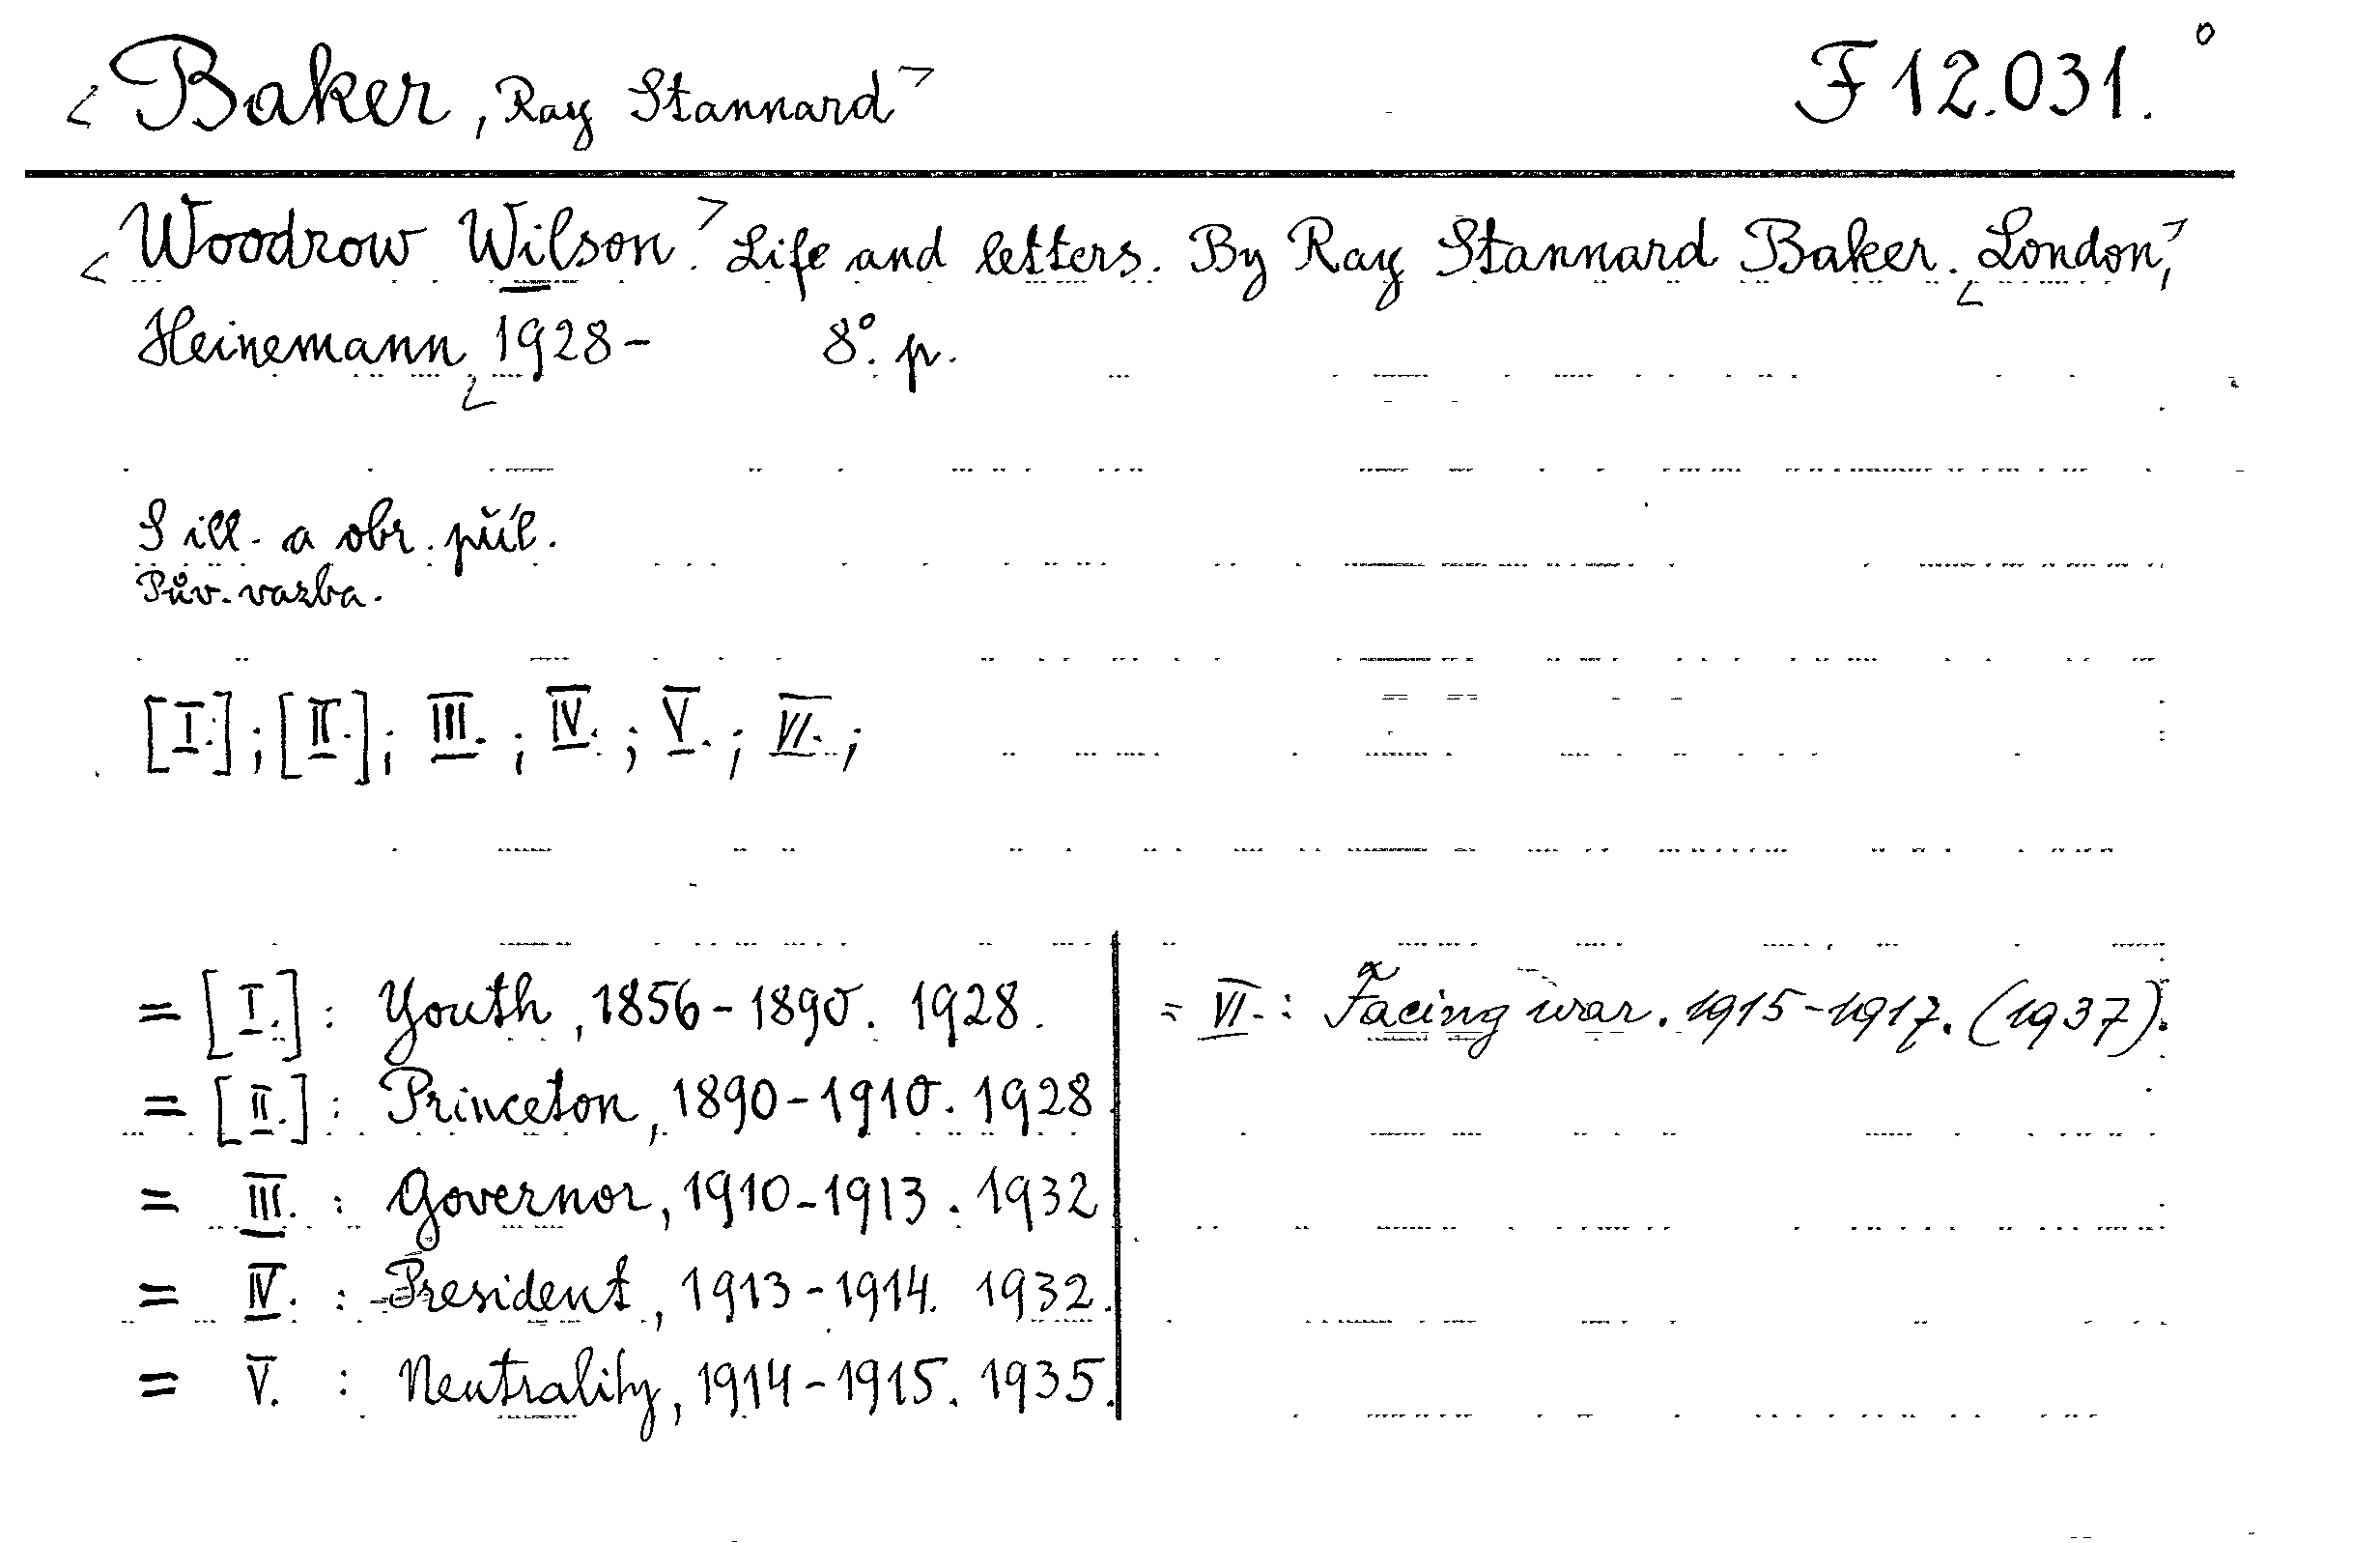 <Baker, Ray Stannard> F 12.031.°
<Woodrow Wilson.> Life and letters. By Ray Stannard Baker. <London,>
Heinemann, <1928- 8°. p.
S ill. a obr. příl.
Pův. vazba.
[I.]; [II.]; III.; IV.; V.; VI.;
= [I.]: Youth, 1856-1890. 1928.
= [II.]: Princeton, 1890-1910. 1928
= III. : Governor, 1910-1913. 1932
= IV. : President, 1913-1914. 1932.
= V. : Neutrality, 1914-1915. 1935.
= VI.: Facing war. 1915-1917. (1937).